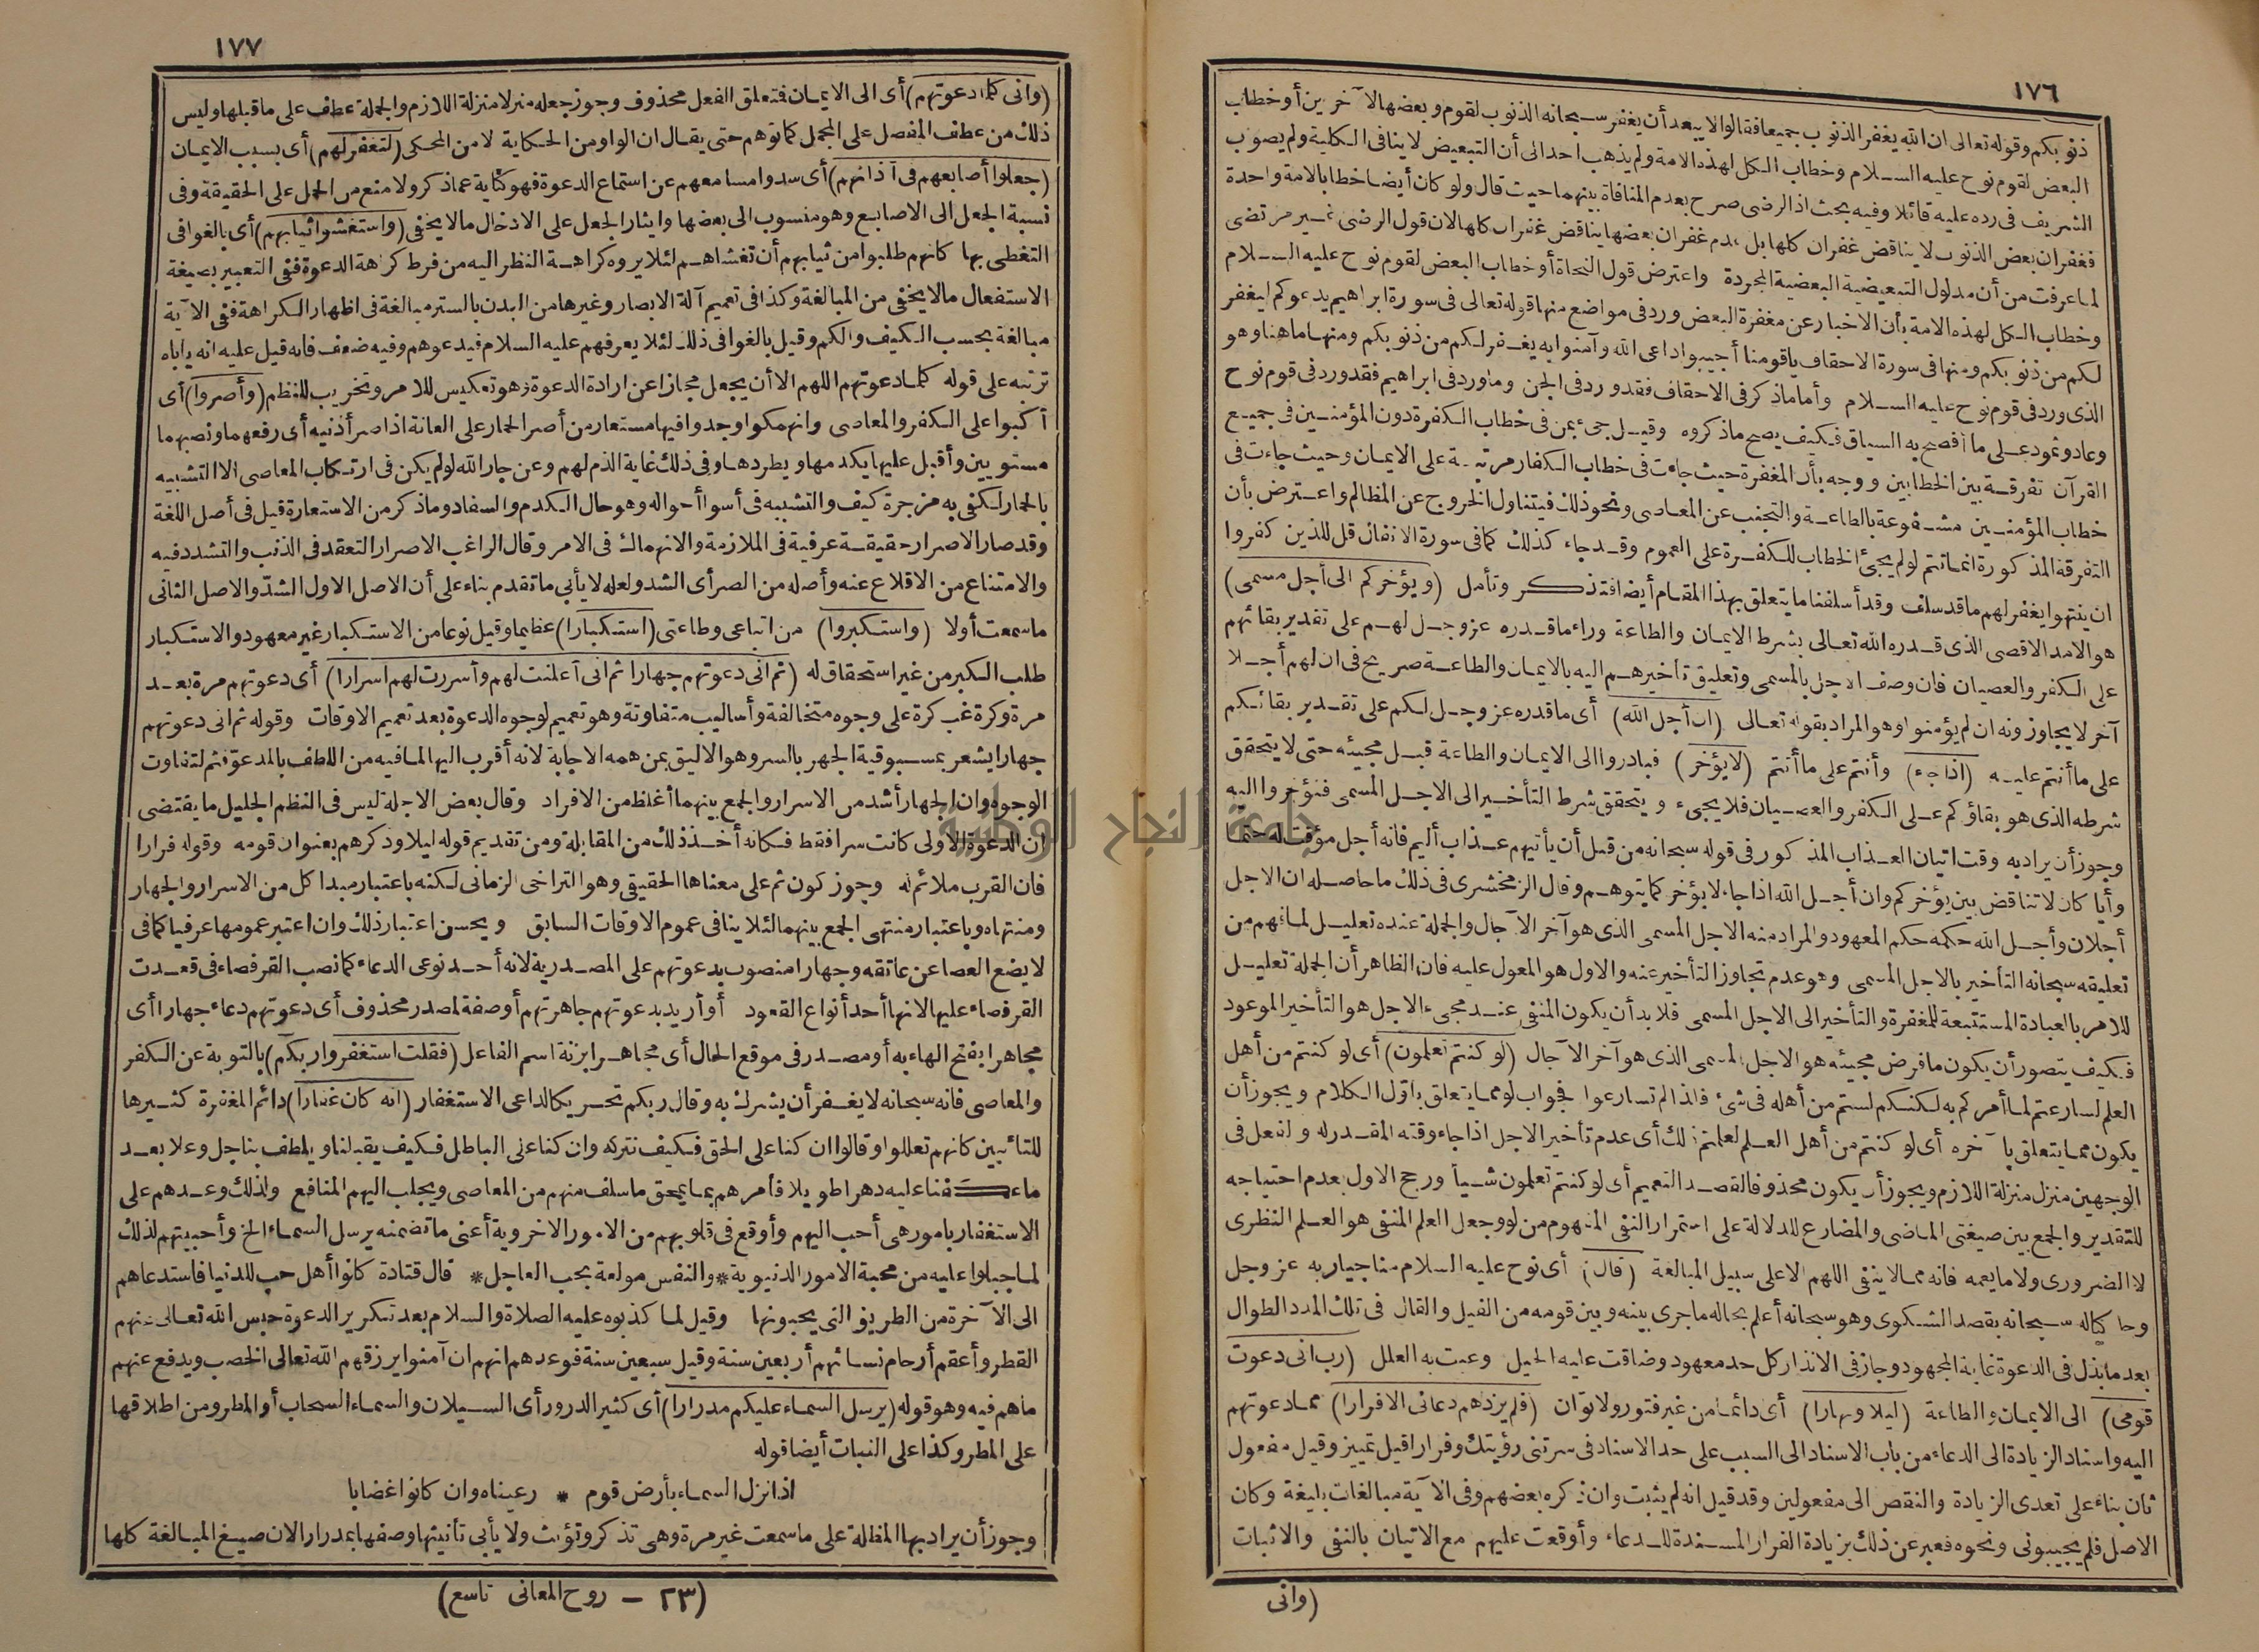 ١٧٦
ذنوبكم وقوله تعالى ان الله يغفر الذنوب جميعا فقالوا لا يبعد أن يغفر سبحانه الذنوب لقوم وبعضها لآخرين أو خطاب
البعض لقوم نوح عليه السلام وخطاب الكل لهذه الامة ولم يذهب احد الى أن التبعيض لا ينافى الكلية ولم يصوب
الشريف فى رده عليه قائلا وفيه بحث اذ الرضى صرح بعدم المنافاة بينهما حيث قال ولو كان أيضا خطابا لامة واحدة
فغفران بعض الذنوب لا يناقض غفران كلها بل عدم غفران بعضها يناقض غفران كلها لان قول الرضى غير مرتضى
لما عرفت من أن مدلول التبعيضية البعضية المجردة واعترض قول النحاة أو خطاب البعض لقوم نوح عليه السلام
وخطاب الكل لهذه الامة بأن الاخبار عن مغفرة البعض ورد فى مواضع منها قوله تعالى فى سورة ابراهيم يدعوكم ليغفر
لكم من ذنوبكم ومنها فى سورة الاحقاف ياقومنا أجيبوا داعى الله وآمنوا به يغفر لكم من ذنوبكم ومنها ما هنا وهو
الذى ورد فى قوم نوح عليه السلام وأما ما ذكر فى الاحقاف فقد ورد فى الجن وما ورد فى ابراهيم فقد ورد فى قوم نوح
وعاد وثمود على ما أفصح به السياق فكيف يصح ما ذكروه وقيل جىء بمن فى خطاب الكفرة دون المؤمنين فى جميع
القرآن تفرقة بين الخطابين ووجه بأن المغفرة حيث جاءت فى خطاب الكفار مرتبة على الايمان وحيث جاءت فى
خطاب المؤمنين مشفوعة بالطاعة والتجنب عن المعاصى ونحو ذلك فيتناول الخروج عن المظالم واعترض بأن
التفرقة المذكورة انما تتم لو لم يجئ الخطاب للكفرة على العموم وقد جاء كذلك كما فى سورة الانفال قل للذين كفروا
ان ينتهوا يغفر لهم ما قد سلف وقد أسلفنا ما يتعلق بهذا المقام أيضا فتذكر وتأمل (ويؤخركم الى أجل مسمى)
هو الامد الاقصى الذى قدره الله تعالى بشرط الايمان والطاعة وراء ما قدره عز وجل لهم على تقدير بقائهم
على الكفر والعصيان فان وصف الاجل بالمسمى وتعليق تأخيرهم اليه بالايمان والطاعة صريح فى ان لهم أجلا
آخر لا يجاوزونه ان لم يؤمنوا وهو المراد بقوله تعالى (ان أجل الله) أى ما قدره عز وجل لكم على تقدير بقائكم
على ما أنتم عليه (اذا جاء) وأنتم على ما أنتم (لا يؤخر) فبادروا الى الايمان والطاعة قبل مجيئه حتى لا يتحقق
شرطه الذى هو بقاؤكم على الكفر والعصيان فلا يجىء ويتحقق شرط التأخير الى الاجل المسمى فتؤخروا اليه
وجوز أن يراد به وقت اتيان العذاب المذكور فى قوله سبحانه من قبل أن يأتيهم عذاب أليم فانه أجل مؤقت له حتما
وأيا كان لا تناقض بين يؤخركم وان أجل الله اذا جاء لا يؤخر كما يتوهم وقال الزمخشرى فى ذلك ما حاصله ان الاجل
أجلان وأجل الله حكمه حكم المعهود والمراد منه الاجل المسمى الذى هو آخر الآجال والجملة عنده تعليل لما فهم من
تعليقه سبحانه التأخير بالاجل المسمى وهو عدم تجاوز التأخير عنه والاول هو المعول عليه فان الظاهر أن الجملة تعليل
للامر بالعبادة المستتبعة للمغفرة والتأخير الى الاجل المسمى فلا بد أن يكون المنفى عند مجىء الاجل هو التأخير الموعود
فكيف يتصور أن يكون ما فرض مجيئه هو الاجل المسمى الذى هو آخر الآجال (لو كنتم تعلمون) أى لو كنتم من أهل
العلم لسارعتم لما أمركم به لكنكم لستم من أهله فى شئ فلذا لم تسارعوا فجواب لو مما يتعلق باول الكلام ويجوز أن
يكون مما يتعلق بآخره أى لو كنتم من أهل العلم لعلمتم ذلك أى عدم تأخير الاجل اذا جاء وقته المقدر له والفعل فى
الوجهين منزل منزلة اللازم ويجوز أن يكون محذوفا لقصد التعميم أى لو كنتم تعلمون شيأ ورجح الاول بعدم احتياجه
للتقدير والجمع بين صيغتى الماضى والمضارع للدلالة على استمرار النفى المفهوم من لو وجعل العلم المنفى هو العلم النظرى
لا الضرورى ولا ما يعمه فانه مما لا ينفى اللهم الا على سبيل المبالغة (قال) أى نوح عليه السلام مناجيا ربه عز وجل
وحاكيا له سبحانه بقصد الشكوى وهو سبحانه أعلم بحاله ما جرى بينه وبين قومه من القيل والقال فى تلك المدد الطوال
بعد ما بذل فى الدعوة غاية المجهود وجاز فى الانذار كل حد معهود وضاقت عليه الحيل وعيت به العلل (رب انى دعوت
قومى) الى الايمان والطاعة (ليلا ونهارا) أى دائما من غير فتور ولا توان (فلم يزدهم دعائى الا فرارا) مما دعوتهم
اليه واسناد الزيادة الى الدعاء من باب الاسناد الى السبب على حد الاسناد فى سرتنى رؤيتك وفرارا قيل تمييز وقيل مفعول
ثان بناء على تعدى الزيادة والنقص الى مفعولين وقد قيل انه لم يثبت وان ذكره بعضهم وفى الآية مبالغات بليغة وكان
الاصل فلم يجيبونى ونحوه فعبر عن ذلك بزيادة الفرار المسندة للدعاء وأوقعت عليهم مع الاتيان بالنفى والاثبات
(وانى
١٧٧
(وانى كلما دعوتهم) أى الى الايمان فتعلق الفعل محذوف وجوز جعله منزلا منزلة اللازم والجملة عطف على ما قبلها وليس
ذلك من عطف المفصل على المجمل كما توهم حتى يقال ان الواو من الحكاية لا من المحكى (لتغفر لهم) أى بسبب الايمان
(جعلوا أصابعهم فى آذانهم) أى سدوا مسامعهم عن استماع الدعوة فهو كناية عما ذكر ولا منع من الحمل على الحقيقة وفى
نسبة الجعل الى الاصابع وهو منسوب الى بعضها وايثار الجعل على الادخال ما لا يخفى (واستغشوا ثيابهم) أى بالغوا فى
التغطى بها كانهم طلبوا من ثيابهم أن تغشاهم لئلا يروه كراهة النظر اليه من فرط كراهة الدعوة ففى التعبير بصيغة
الاستفعال ما لا يخفى من المبالغة وكذا فى تعميم آلة الابصار وغيرها من البدن بالستر مبالغة فى اظهار الكراهة ففى الآية
مبالغة بحسب الكيف والكم وقيل بالغوا فى ذلك لئلا يعرفهم عليه السلام فيدعوهم وفيه ضعف فانه قيل عليه انه ياباه
ترتبه على قوله كلما دعوتهم اللهم الا أن يجعل مجازا عن ارادة الدعوة وهو تعكيس للامر وتخريب للنظم (وأصروا) أى
أكبوا على الكفر والمعاصى وانهمكوا وجدوا فيها مستعار من أصر الحمار على العانة اذا صر أذنيه أى رفعهما ونصبهما
مستويين وأقبل عليها يكدمها ويطردها وفى ذلك غاية الذم لهم وعن جار الله لو لم يكن فى ارتكاب المعاصى الا التشبيه
بالحمار لكفى به مزجرة كيف والتشبيه فى أسوا أحواله وهو حال الكدم والسفاد وما ذكر من الاستعارة قيل فى أصل اللغة
وقد صار الاصرار حقيقة عرفية فى الملازمة والانهماك فى الامر وقال الراغب الاصرار التعقد فى الذنب والتشدد فيه
والامتناع من الاقلاع عنه وأصله من الصر أى الشد ولعله لا يأبى ما تقدم بناء على أن الاصل الاول الشد والاصل الثانى
ما سمعت أولا (واستكبروا) من اتباعى وطاعتى (استكبارا) عظيما وقيل نوعا من الاستكبار غير معهود والاستكبار
طلب الكبر من غير استحقاق له (ثم انى دعوتهم جهارا ثم انى أعلنت لهم وأسررت لهم اسرارا) أى دعوتهم مرة بعد
مرة وكرة غب كرة على وجوه متخالفة وأساليب متفاوتة وهو تعميم لوجوه الدعوة بعد تعميم الاوقات وقوله ثم انى دعوتهم
جهارا يشعر بمسبوقية الجهر بالسر وهو الاليق بمن همه الاجابة لانه أقرب اليها لما فيه من اللطف بالمدعو فثم لتفاوت
الوجوه وان الجهار أشد من الاسرار والجمع بينهما أغلظ من الافراد وقال بعض الاجلة ليس فى النظم الجليل ما يقتضى
ان الدعوة الاولى كانت سرا فقط فكانه أخذ ذلك من المقابلة ومن تقديم قوله ليلا وذكرهم بعنوان قومه وقوله فرارا
فان القرب ملائم له وجوز كون ثم على معناها الحقيقى وهو التراخى الزمانى لكنه باعتبار مبدا كل من الاسرار والجهار
ومنتهاه وباعتبار منتهى الجمع بينهما لئلا ينافى عموم الاوقات السابق ويحسن اعتبار ذلك وان اعتبر عمومها عرفيا كما فى
لا يضع العصا عن عاتقه وجهارا منصوب بدعوتهم على المصدرية لانه أحد نوعى الدعاء كما نصب القرفصاء فى قعدت
القرفصاء عليها لانها أحد أنواع القعود أو أريد بدعوتهم جاهرتهم أو صفة لمصدر محذوف أى دعوتهم دعاء جهارا أى
مجاهرا بفتح الهاء به أو مصدر فى موقع الحال أى مجاهرا بزنة اسم الفاعل (فقلت استغفروا ربكم) بالتوبة عن الكفر
والمعاصى فانه سبحانه لا يغفر أن يشرك به وقال ربكم تحريكا لداعى الاستغفار (انه كان غفارا) دائم المغفرة كثيرها
للتائبين كانهم تعللوا وقالوا ان كنا على الحق فكيف نتركه وان كنا على الباطل فكيف يقبلنا ويلطف بنا جل وعلا بعد
ما عكفنا عليه دهرا طويلا فأمرهم بما يمحق ما سلف منهم من المعاصى ويجلب اليهم المنافع ولذلك وعدهم على
الاستغفار بامور هى أحب اليهم وأوقع فى قلوبهم من الامور الاخروية أعنى ما تضمنه يرسل السماء الخ وأحبيتهم لذلك
لما جبلوا عليه من محبة الامور الدنيوية * والنفس مولعة بحب العاجل * قال قتادة كانوا أهل حب للدنيا فاستدعاهم
الى الآخرة من الطريق التى يحبونها وقيل لما كذبوه عليه الصلاة والسلام بعد تكرير الدعوة حبس الله تعالى عنهم
القطر وأعقم أرحام نسائهم أربعين سنة وقيل سبعين سنة فوعدهم انهم ان آمنوا يرزقهم الله تعالى الخصب ويدفع عنهم
ما هم فيه وهو قوله (يرسل السماء عليكم مدرارا) أى كثير الدرور أى السيلان والسماء السحاب أو المطر ومن اطلاقها
على المطر وكذا على النبات أيضا قوله
اذا نزل السماء بأرض قوم * رعيناه وان كانوا غضابا
وجوز أن يراد بها المظلة على ما سمعت غير مرة وهى تذكر وتؤنث ولا يأبى تأنيثها وصفها بمدرار لان صيغ المبالغة كلها
(٢٣ - روح المعانى تاسع)
جامعة النجاح الوطنية